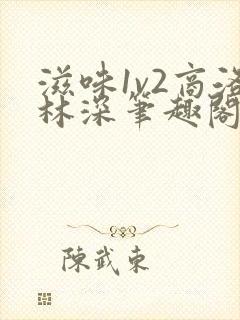 滋味1v2高洛
林深笔趣阁
陈武东